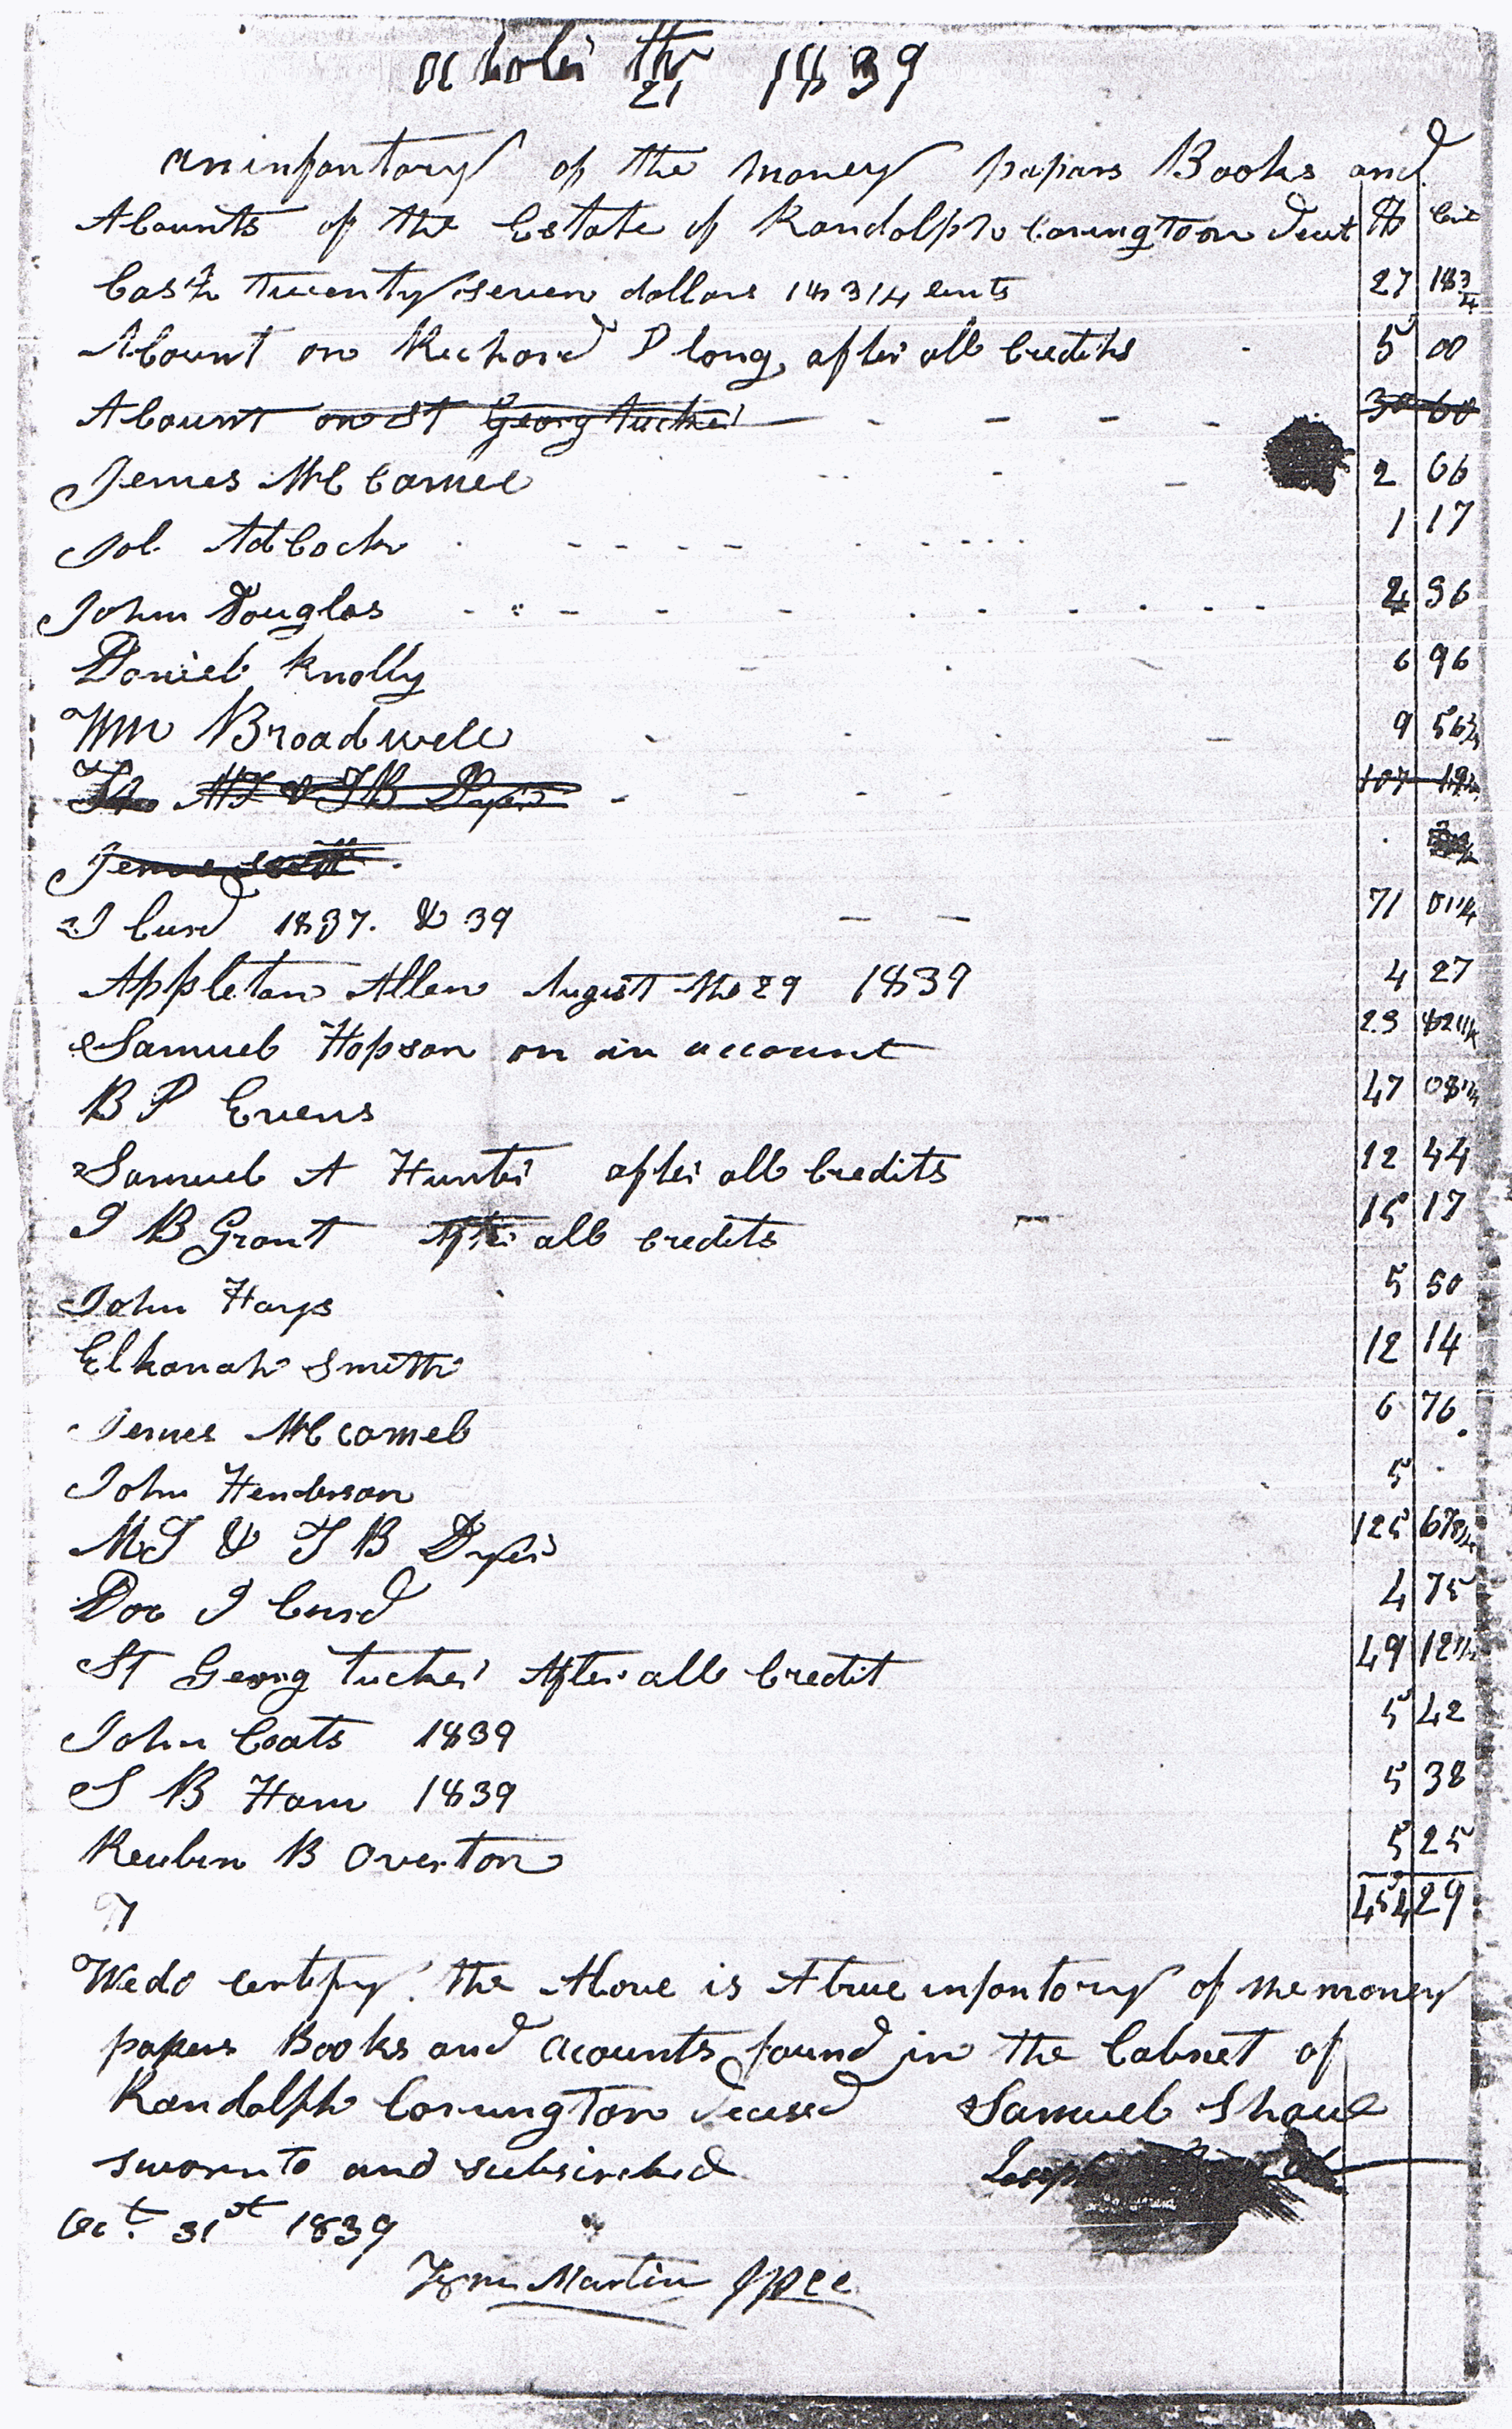 october th 21 1839
an infantory of the money papars Books and
Acounts of the Estate of Randolph Covington Decst $ Cents
Cash twenty seven dollars 18 3/4 cents 27 18 3/4
Acount on Richard P long after all Credits 5 00
Acount on St Georg tucker 30 60
Jemes McCamel 2 66
Jol Adcock 1 17
John Douglas 2 96
Daniel Knolly 6 96
Wm Broadwell 9 56 3/4
MJ & JB Dyer 107 19
Jemes Scott
J Curd 1837. & 39 71 01 1/4
Appleton Allen August the 29 1839 4 27
Samuel Hopson on an account 23 82 1/2
B P Evens 47 08 1/4
Samuel A Hunter after all Credits 12 44
J B Grant After all credits 15 17
John Hays 5 50
Elkanah Smith 12 14
Jemes McCamel 6 76
John Henderson 5 -
MJ & J B Dyer 125 67 3/4
Doc J Curd 4 75
ST Georg tucker After all Credit 49 12 1/2
John Coats 1839 5 42
S B Ham 1839 5 38
Reuben B Overton 5 25
454 29
We do certify the Above is A true infantory of the money
papers Books and acounts found in the Cabnet of
Randolph Covington decesd Samuel Shaul
sworn to and subscirbed Joseph
Oct. 31st 1839
Tyre Martin JPCC